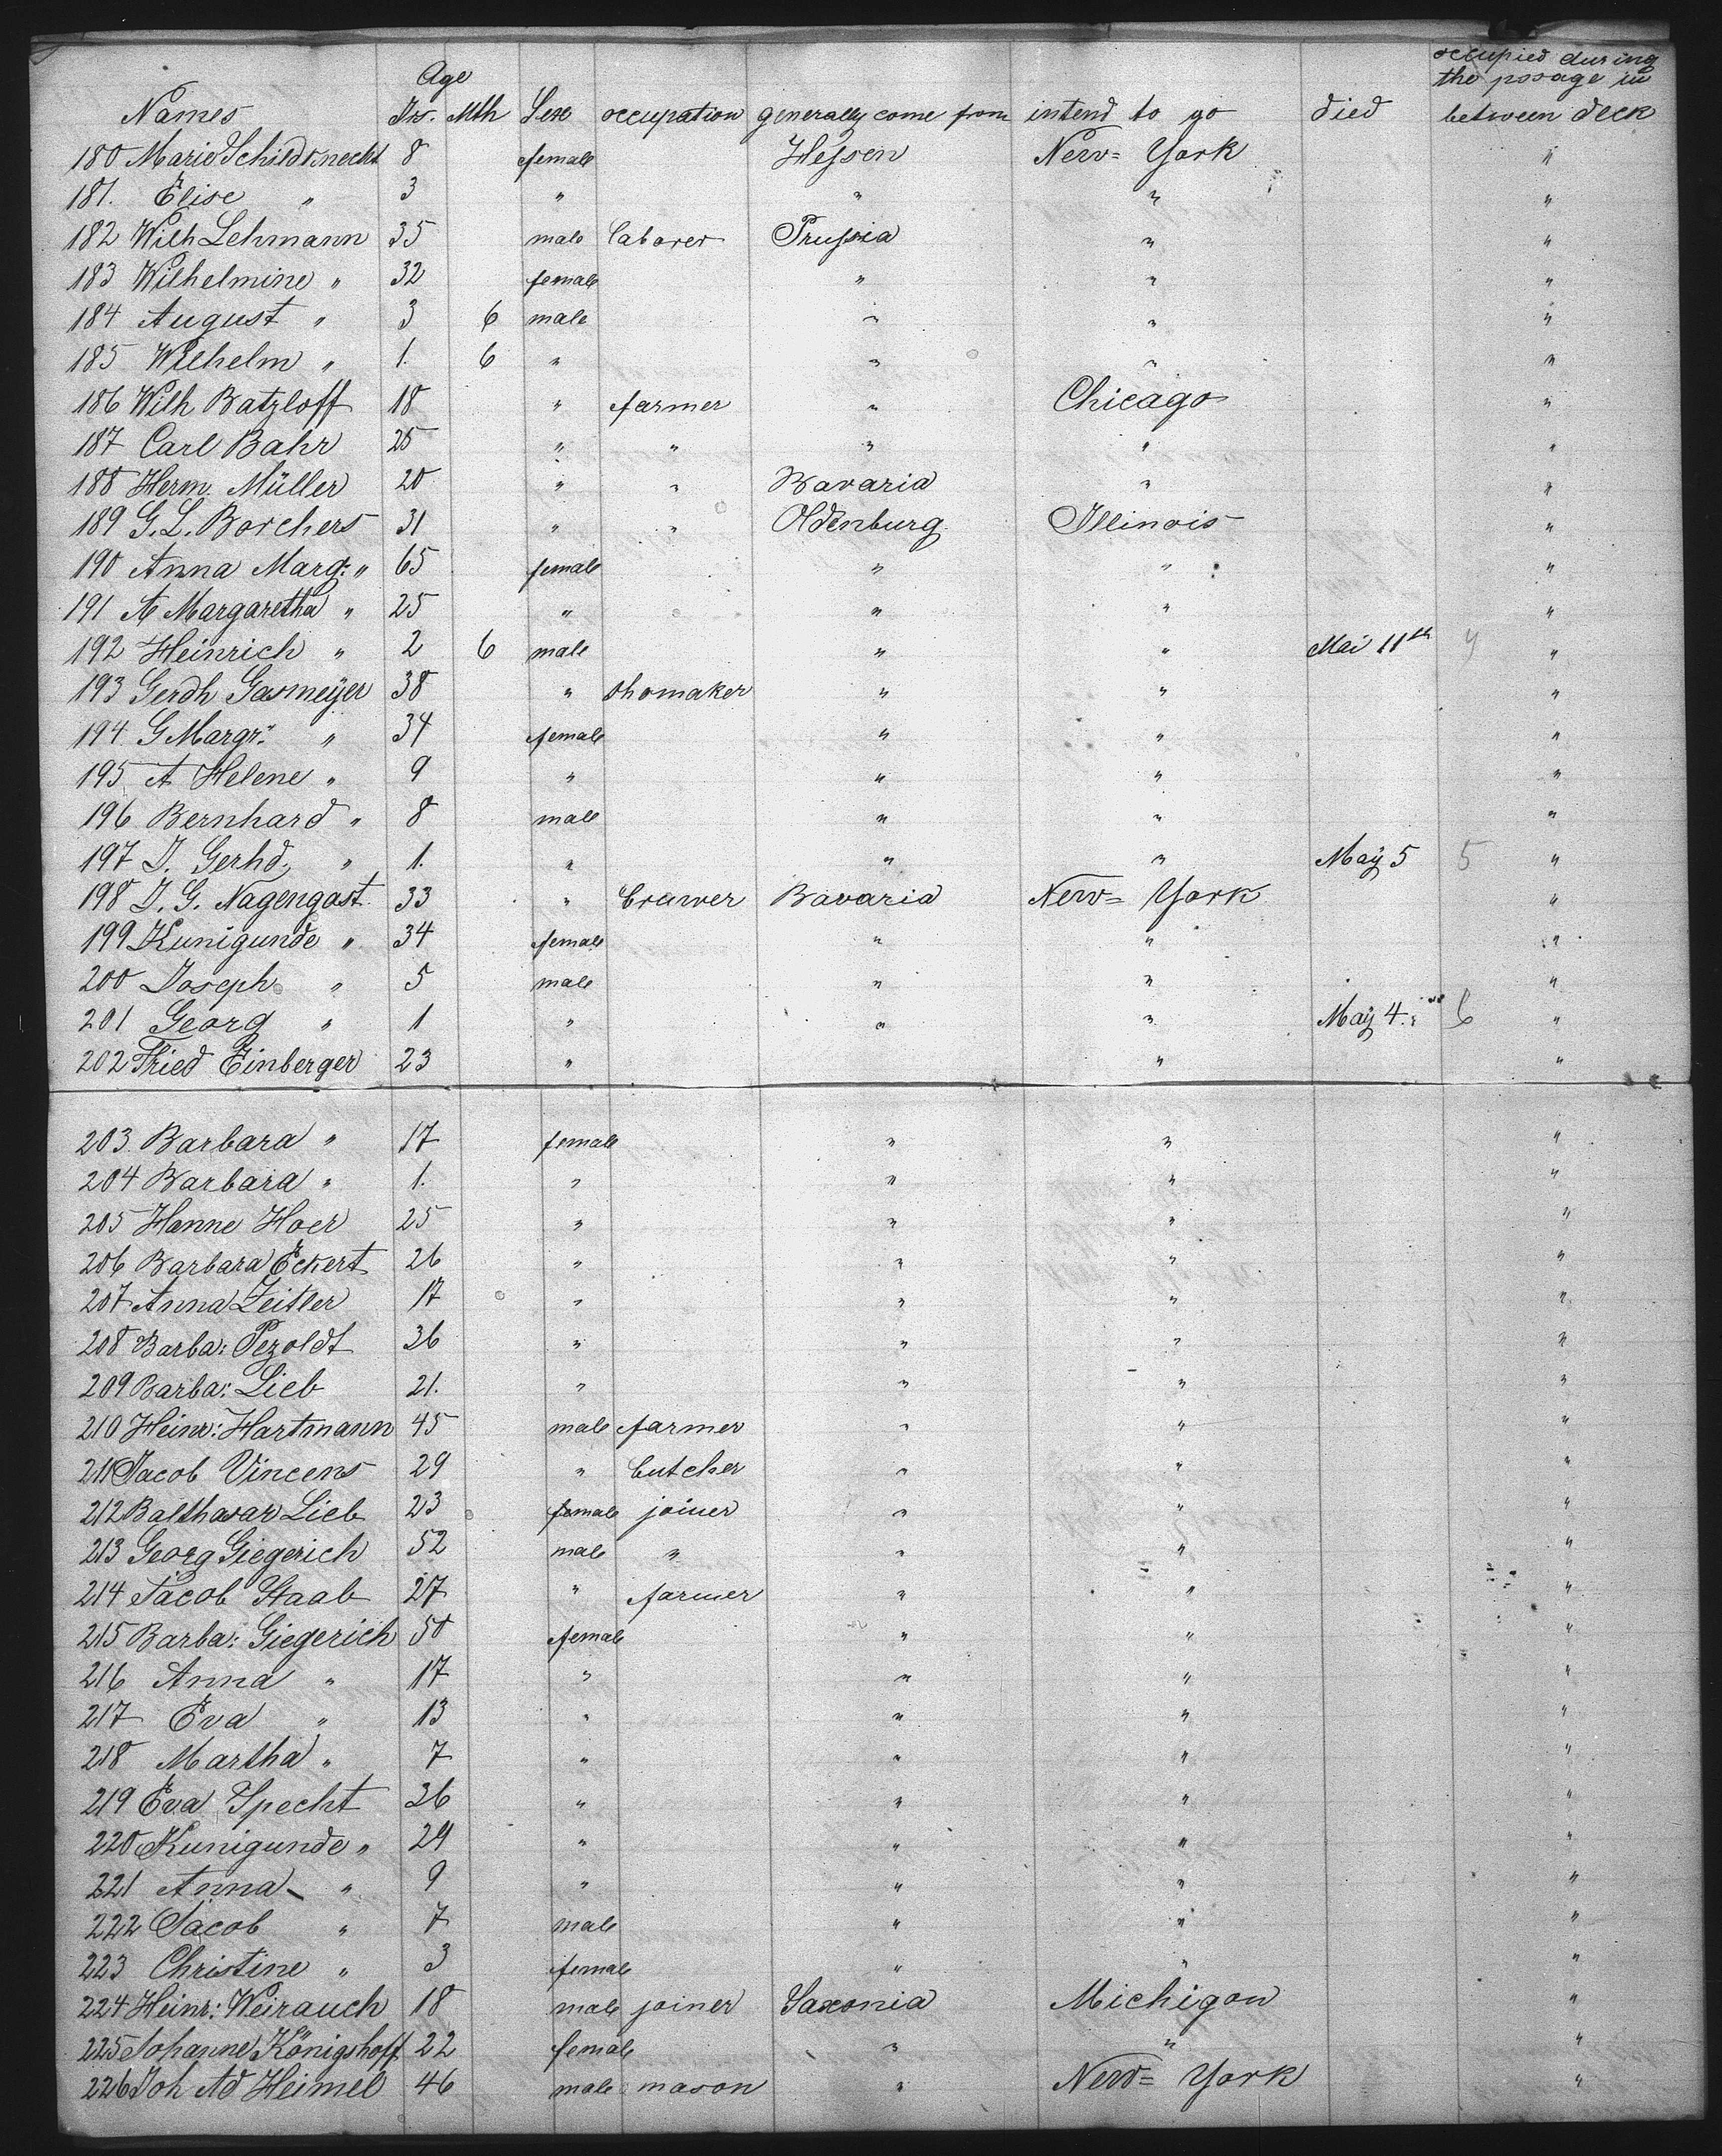 occupied during
Age the pssage in
Names Yrs. Mth Sex occupation generally come from intend to go died between deck
180 Marie Schildknecht 8 female Hessen New= York "
181. Elise " 3 " " " "
182 Wilh Lehmann 35 male laborer Prussia " "
183 Wilhelmine " 32 female " " "
184 August " 3 6 male " " "
185 Wilhelm " 1. 6 " " " "
186 Wilh Batzloff 18 " farmer " Chicago "
187 Carl Bahr 25 " " " " "
188 Herm. Müller 20 " " Bavaria " "
189 G. L. Borchers 31 " " Oldenburg Illinois "
190 Anna Marg: " 65 female " " "
191 A Margaretha " 25 " " " "
192 Heinrich " 2 6 male " " Mai 11th 4 "
193 Gerdh Gasmeÿer 38 " shomaker " " "
194 G Margr: " 34 female " " "
195 A Helene " 9 " " " "
196 Bernhard " 8 male " " "
197 J. Gerhd. " 1. " " " Maÿ 5 5 "
198 J. G. Nagengast 33 " brawer Bavaria New= York "
199 Kunigunde " 34 female " " "
200 Joseph " 5 male " " "
201 Georg " 1 " " " Maÿ 4. 6 "
202 Fried Einberger 23 " " "
203. Barbara " 17 female " " "
204 Barbara " 1. " " " "
205 Hanne Hoer 25 " " " "
206 Barbara Eckert 26 " " " "
207 Anna Zeitler 17 " " " "
208 Barba: Pezoldt 36 " " " "
209 Barba: Lieb 21. " " " "
210 Heinr: Hartmann 45 male farmer " " "
211 Jacob Vincens 29 " butcher " " "
212 Balthasar Lieb 23 female joiner " " "
213 Georg Giegerich 52 male " " " "
214 Jacob Staab 27 " farmer " " "
215 Barba: Giegerich 50 female " " "
216 Anna " 17 " " " "
217 Eva " 13 " " " "
218 Martha " 7 " " " "
219 Eva Specht 36 " " " "
220 Kunigunde " 29 " " " "
221 Anna " 9 " " " "
222 Jacob " 7 male " " "
223 Christine " 3 female " " "
224 Heinr: Weirauch 18 male joiner Saxonia Michigon "
225 Johanne Königshoff 22 female " " "
226 Joh Ad Heimel 46 male mason " New= York "